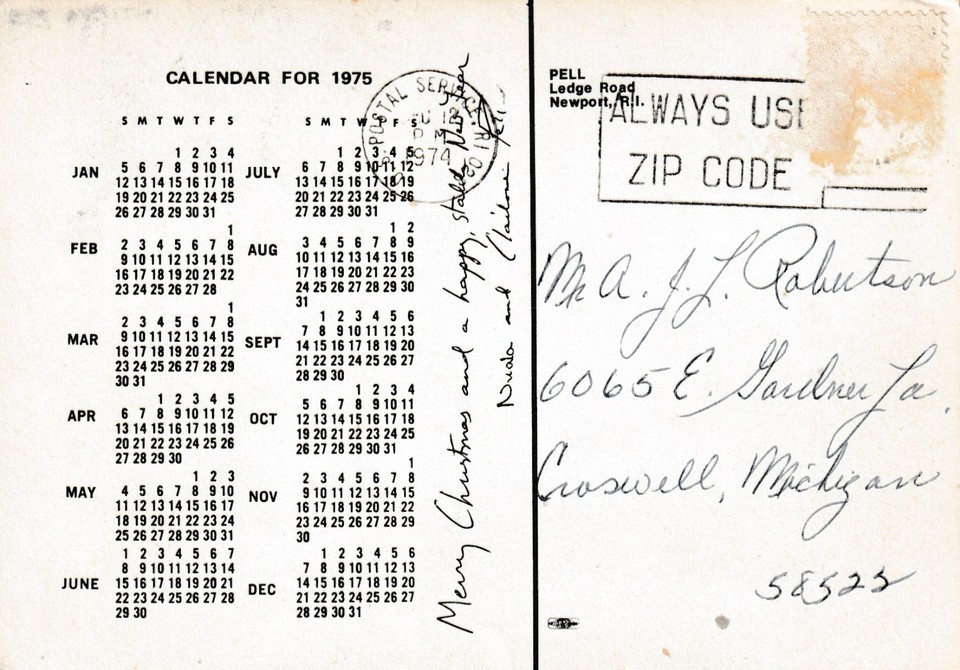 CALENDAR FOR 1975
S M T W T F S
JAN
1 2 3 4
5 6 7 8 9 10 11
12 13 14 15 16 17 18
19 20 21 22 23 24 25
26 27 28 29 30 31
FEB
1
2 3 4 5 6 7 8
9 10 11 12 13 14 15
16 17 18 19 20 21 22
23 24 25 26 27 28
MAR
1
2 3 4 5 6 7 8
9 10 11 12 13 14 15
16 17 18 19 20 21 22
23 24 25 26 27 28 29
30 31
APR
1 2 3 4 5
6 7 8 9 10 11 12
13 14 15 16 17 18 19
20 21 22 23 24 25 26
27 28 29 30
MAY
1 2 3
4 5 6 7 8 9 10
11 12 13 14 15 16 17
18 19 20 21 22 23 24
25 26 27 28 29 30 31
JUNE
1 2 3 4 5 6 7
8 9 10 11 12 13 14
15 16 17 18 19 20 21
22 23 24 25 26 27 28
29 30
S M T W T F S
JULY
1 2 3 4 5
6 7 8 9 10 11 12
13 14 15 16 17 18 19
20 21 22 23 24 25 26
27 28 29 30 31
AUG
1 2
3 4 5 6 7 8 9
10 11 12 13 14 15 16
17 18 19 20 21 22 23
24 25 26 27 28 29 30
31
SEPT
1 2 3 4 5 6
7 8 9 10 11 12 13
14 15 16 17 18 19 20
21 22 23 24 25 26 27
28 29 30
OCT
1 2 3 4
5 6 7 8 9 10 11
12 13 14 15 16 17 18
19 20 21 22 23 24 25
26 27 28 29 30 31
NOV
1
2 3 4 5 6 7 8
9 10 11 12 13 14 15
16 17 18 19 20 21 22
23 24 25 26 27 28 29
30
DEC
1 2 3 4 5 6
7 8 9 10 11 12 13
14 15 16 17 18 19 20
21 22 23 24 25 26 27
28 29 30 31
POSTAL SERVICE RI 02
PM
1974
Merry Christmas and a happy, stable New Year
Nuala and Claiborne Pell
PELL
Ledge Road
Newport, R.I.
ALWAYS USE
ZIP CODE
Mr A. J. L. Robertson
6065 E. Gardner La.
Croswell, Michigan
58522